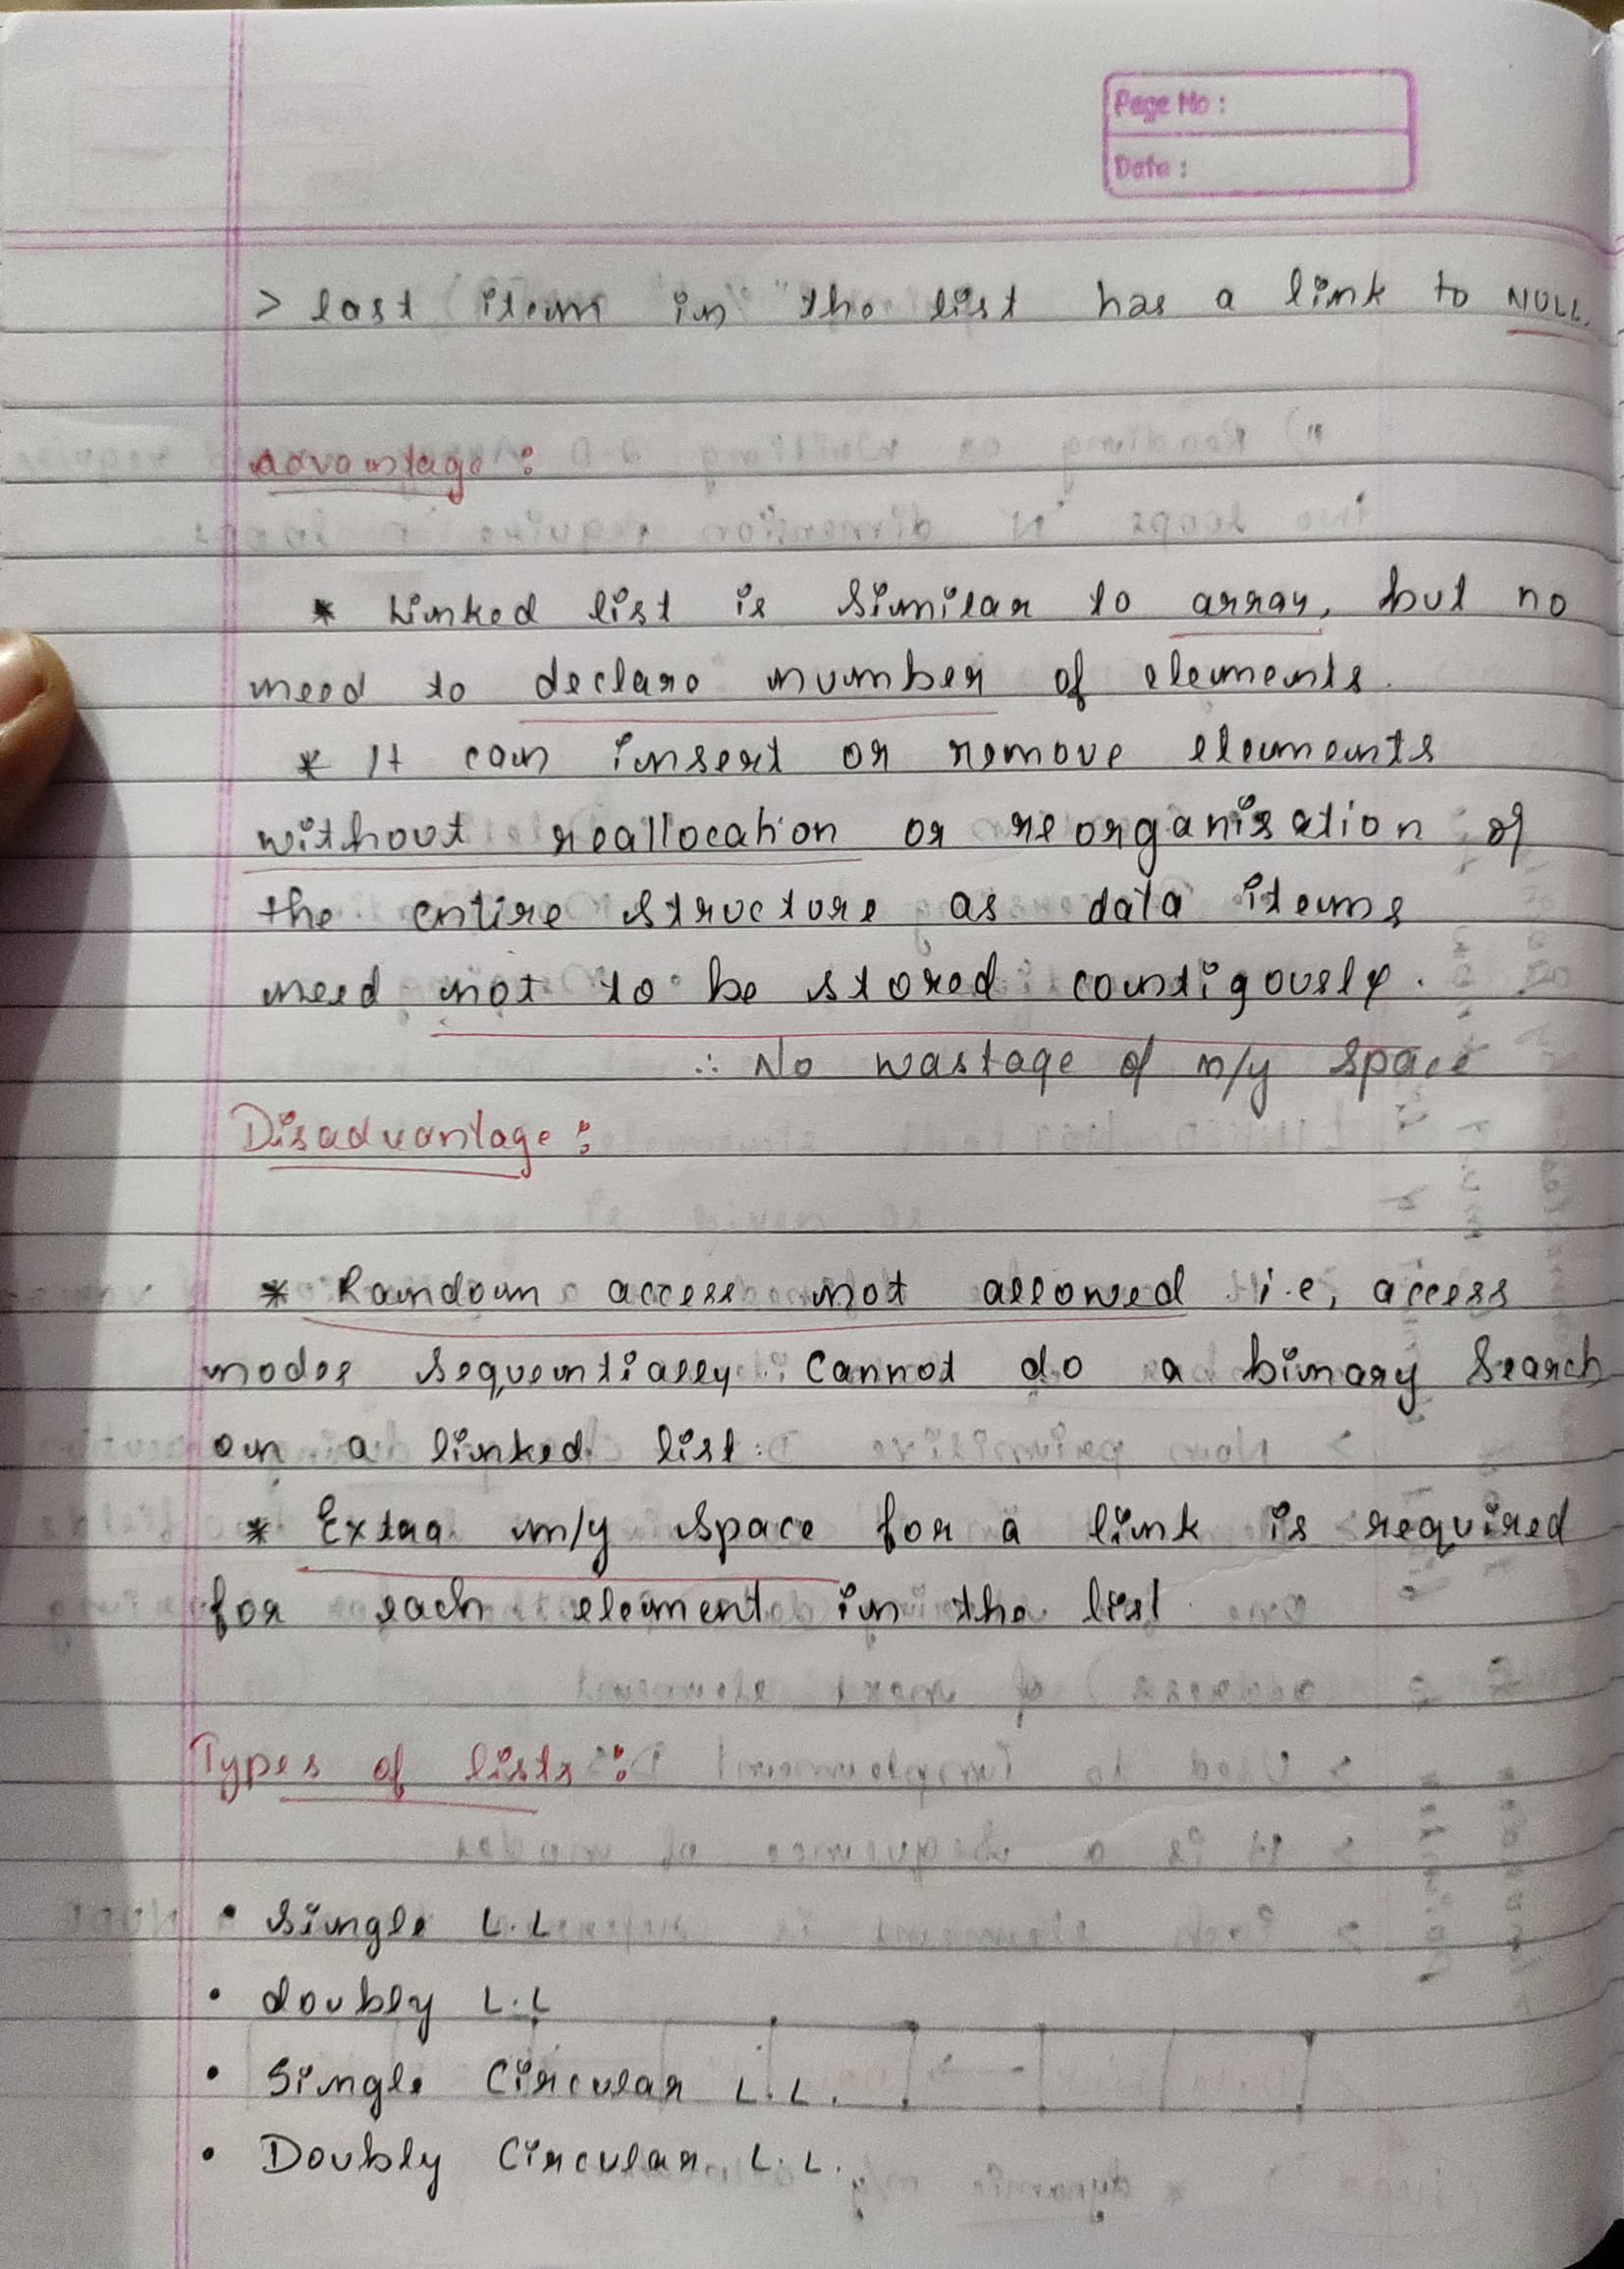 Page No :
Date :
> last item in the list has a link to NULL.
advantage :
* Linked list is similar to array, but no
need to declare number of elements.
* It can insert or remove elements
without reallocation or reorganisation of
the entire structure as data items
need not to be stored contigously.
∴ No wastage of m/y space
Disadvantage :
* Random access not allowed i.e, access
nodes sequentially. Cannot do a binary Search
on a linked list.
* Extra m/y space for a link is required
for each element in the list.
Types of lists :
• Single L.L
• doubly L.L
• Single Circular L.L.
• Doubly Circular L.L.